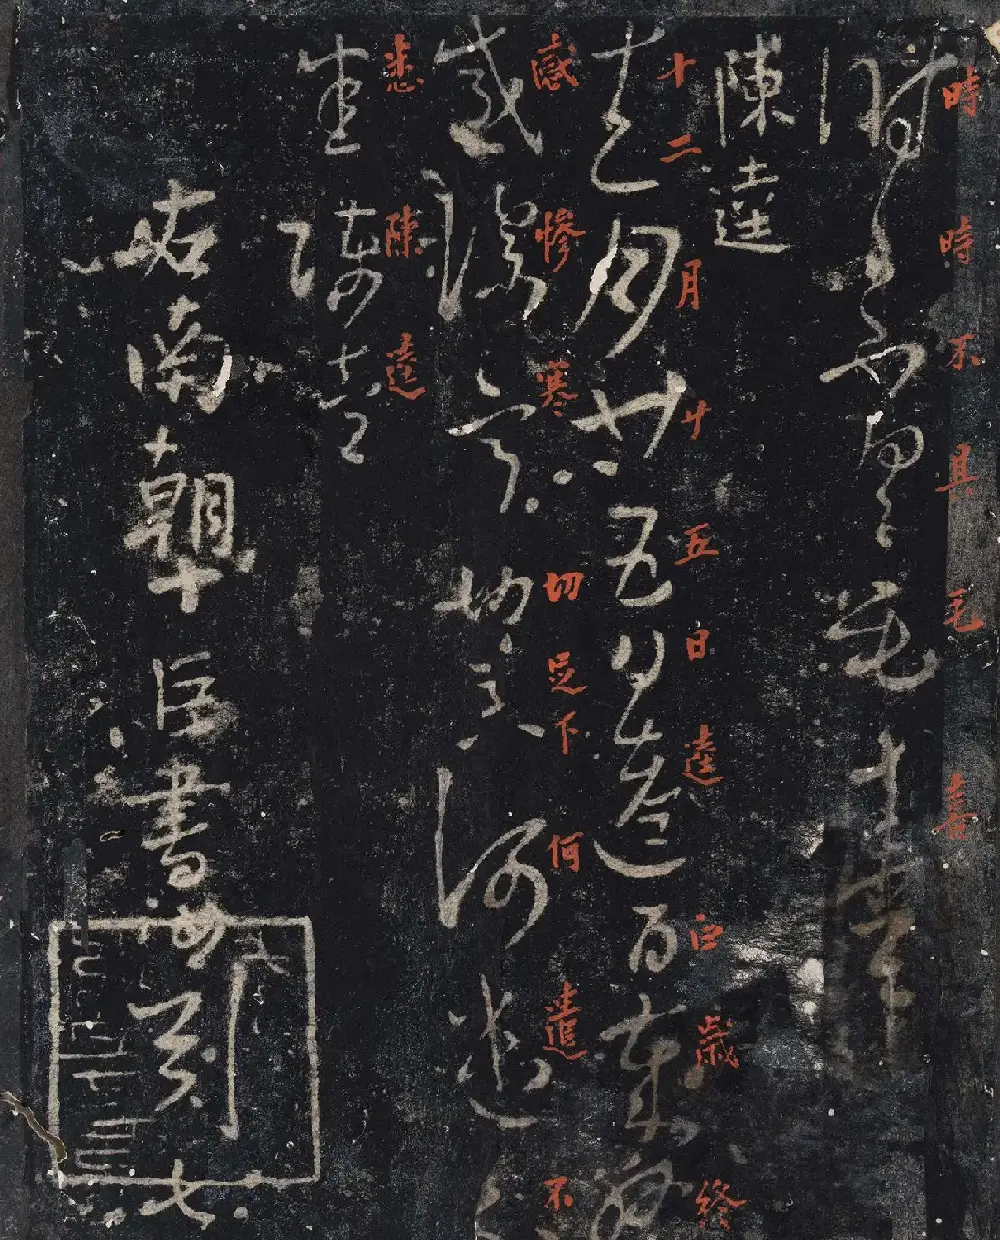 時時不具毛喜
陳逵
十二月廿五日逵白歲終
感慘寒切足下何遣不
悉陳逵
右南朝臣書
七